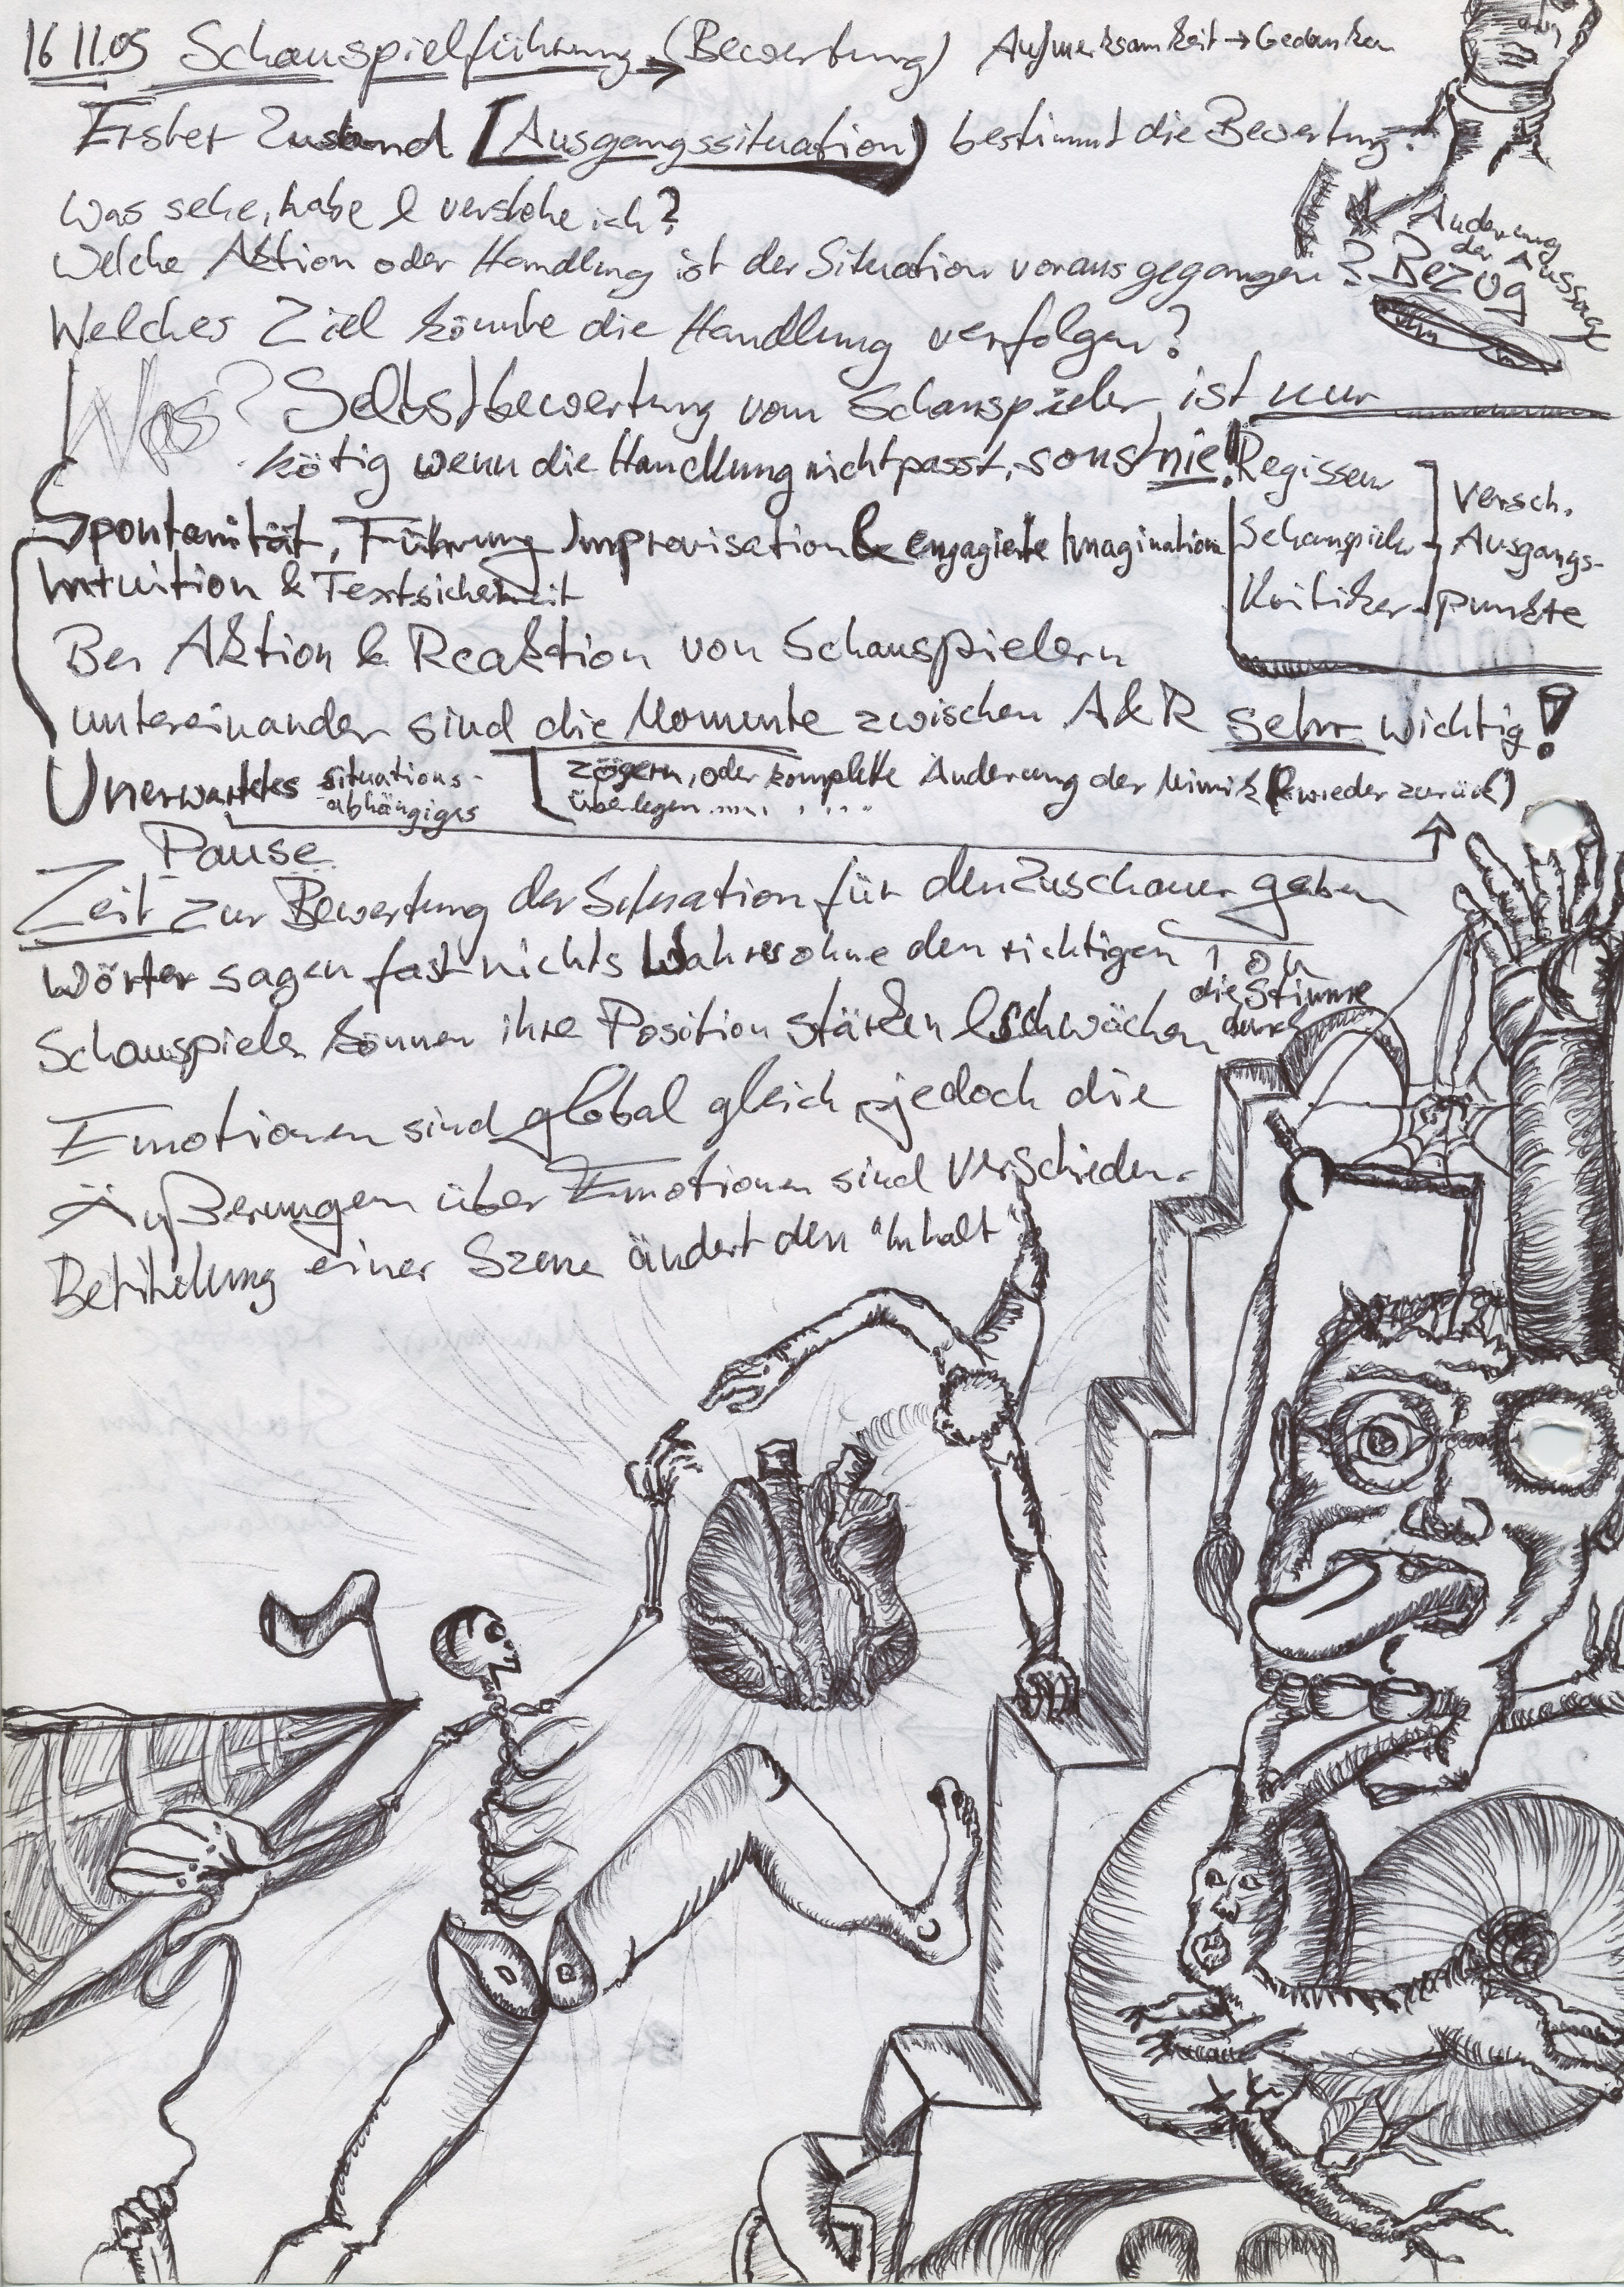 16 11.05 Schauspielführung → (Bewertung) Aufmerksamkeit → Gedanken
Erster Zustand [Ausgangssituation) bestimmt die Bewertung!
Was sehe, habe & verstehe ich?
Welche Aktion oder Handlung ist der Situation vorausgegangen?
Änderung der Aussage
Bezug
Welches Ziel könnte die Handlung verfolgen?
Was? Selbstbewertung vom Schauspieler ist nur
nötig wenn die Handlung nicht passt, sonst nie!
Regisseur
Schauspieler
Kritiker
versch.
Ausgangs-
punkte
Spontanität, Führung Improvisation & engagierte Imagination
Intuition & Textsicherheit
Bei Aktion & Reaktion von Schauspielern
untereinander sind die Momente zwischen A&R sehr wichtig!
Unerwartetes situations-
abhängiges
zögern, oder komplette Änderung der Mimik (& wieder zurück)
überlegen.....
Pause
Zeit zur Bewertung der Situation für den Zuschauer geben
Wörter sagen fast nichts Wahres ohne den richtigen Ton
Schauspieler können ihre Position stärken & schwächen durch
die Stimme
Emotionen sind global gleich jedoch die
Äußerungen über Emotionen sind verschieden.
Betitelung einer Szene ändert den "Inhalt"